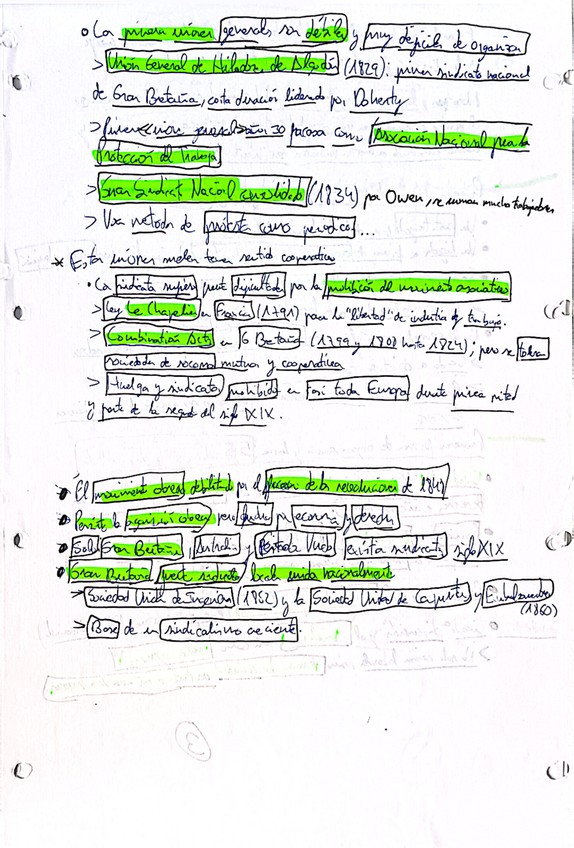 o Las primeras uniones generales son débiles y muy difíciles de organizar
> Unión General de Hiladores de Algodón (1829): primer sindicato nacional
de Gran Bretaña, corta duración liderado por Doherty
años 30 fracasa como Asociación Nacional para la
Protección del Trabajo
> Gran Sindicato Nacional consolidado (1834) por Owen, se suman muchos trabajadores
> Usa métodos de protesta como periódicos...
* Estas uniones suelen tener sentido cooperativo
• Los sindicatos dificultades por la prohibición del asociativo
> Ley Le Chapelier en Francia (1791) para la "libertad" de industria y trabajo.
> Combination Acts en G Bretaña (1799 y 1800 hasta 1824); pero se toleran
sociedades de socorros mutuos y cooperativas
> Huelga y sindicatos prohibidos en casi toda Europa durante primera mitad
y parte de la segunda del siglo XIX.
• El movimiento obrero debilitado por el fracaso de las revoluciones de 1848
• Persiste la obrera pero por economía y derechos
• Solo Gran Bretaña, Australia y Estados Unidos existían sindicatos siglo XIX
• Gran Bretaña sindicatos locales unidos nacionalmente
> Sociedad Unida de Ingenieros (1852) y la Sociedad Unida de Carpinteros y Ensambladores
(1860)
> Base de un sindicalismo creciente.
3